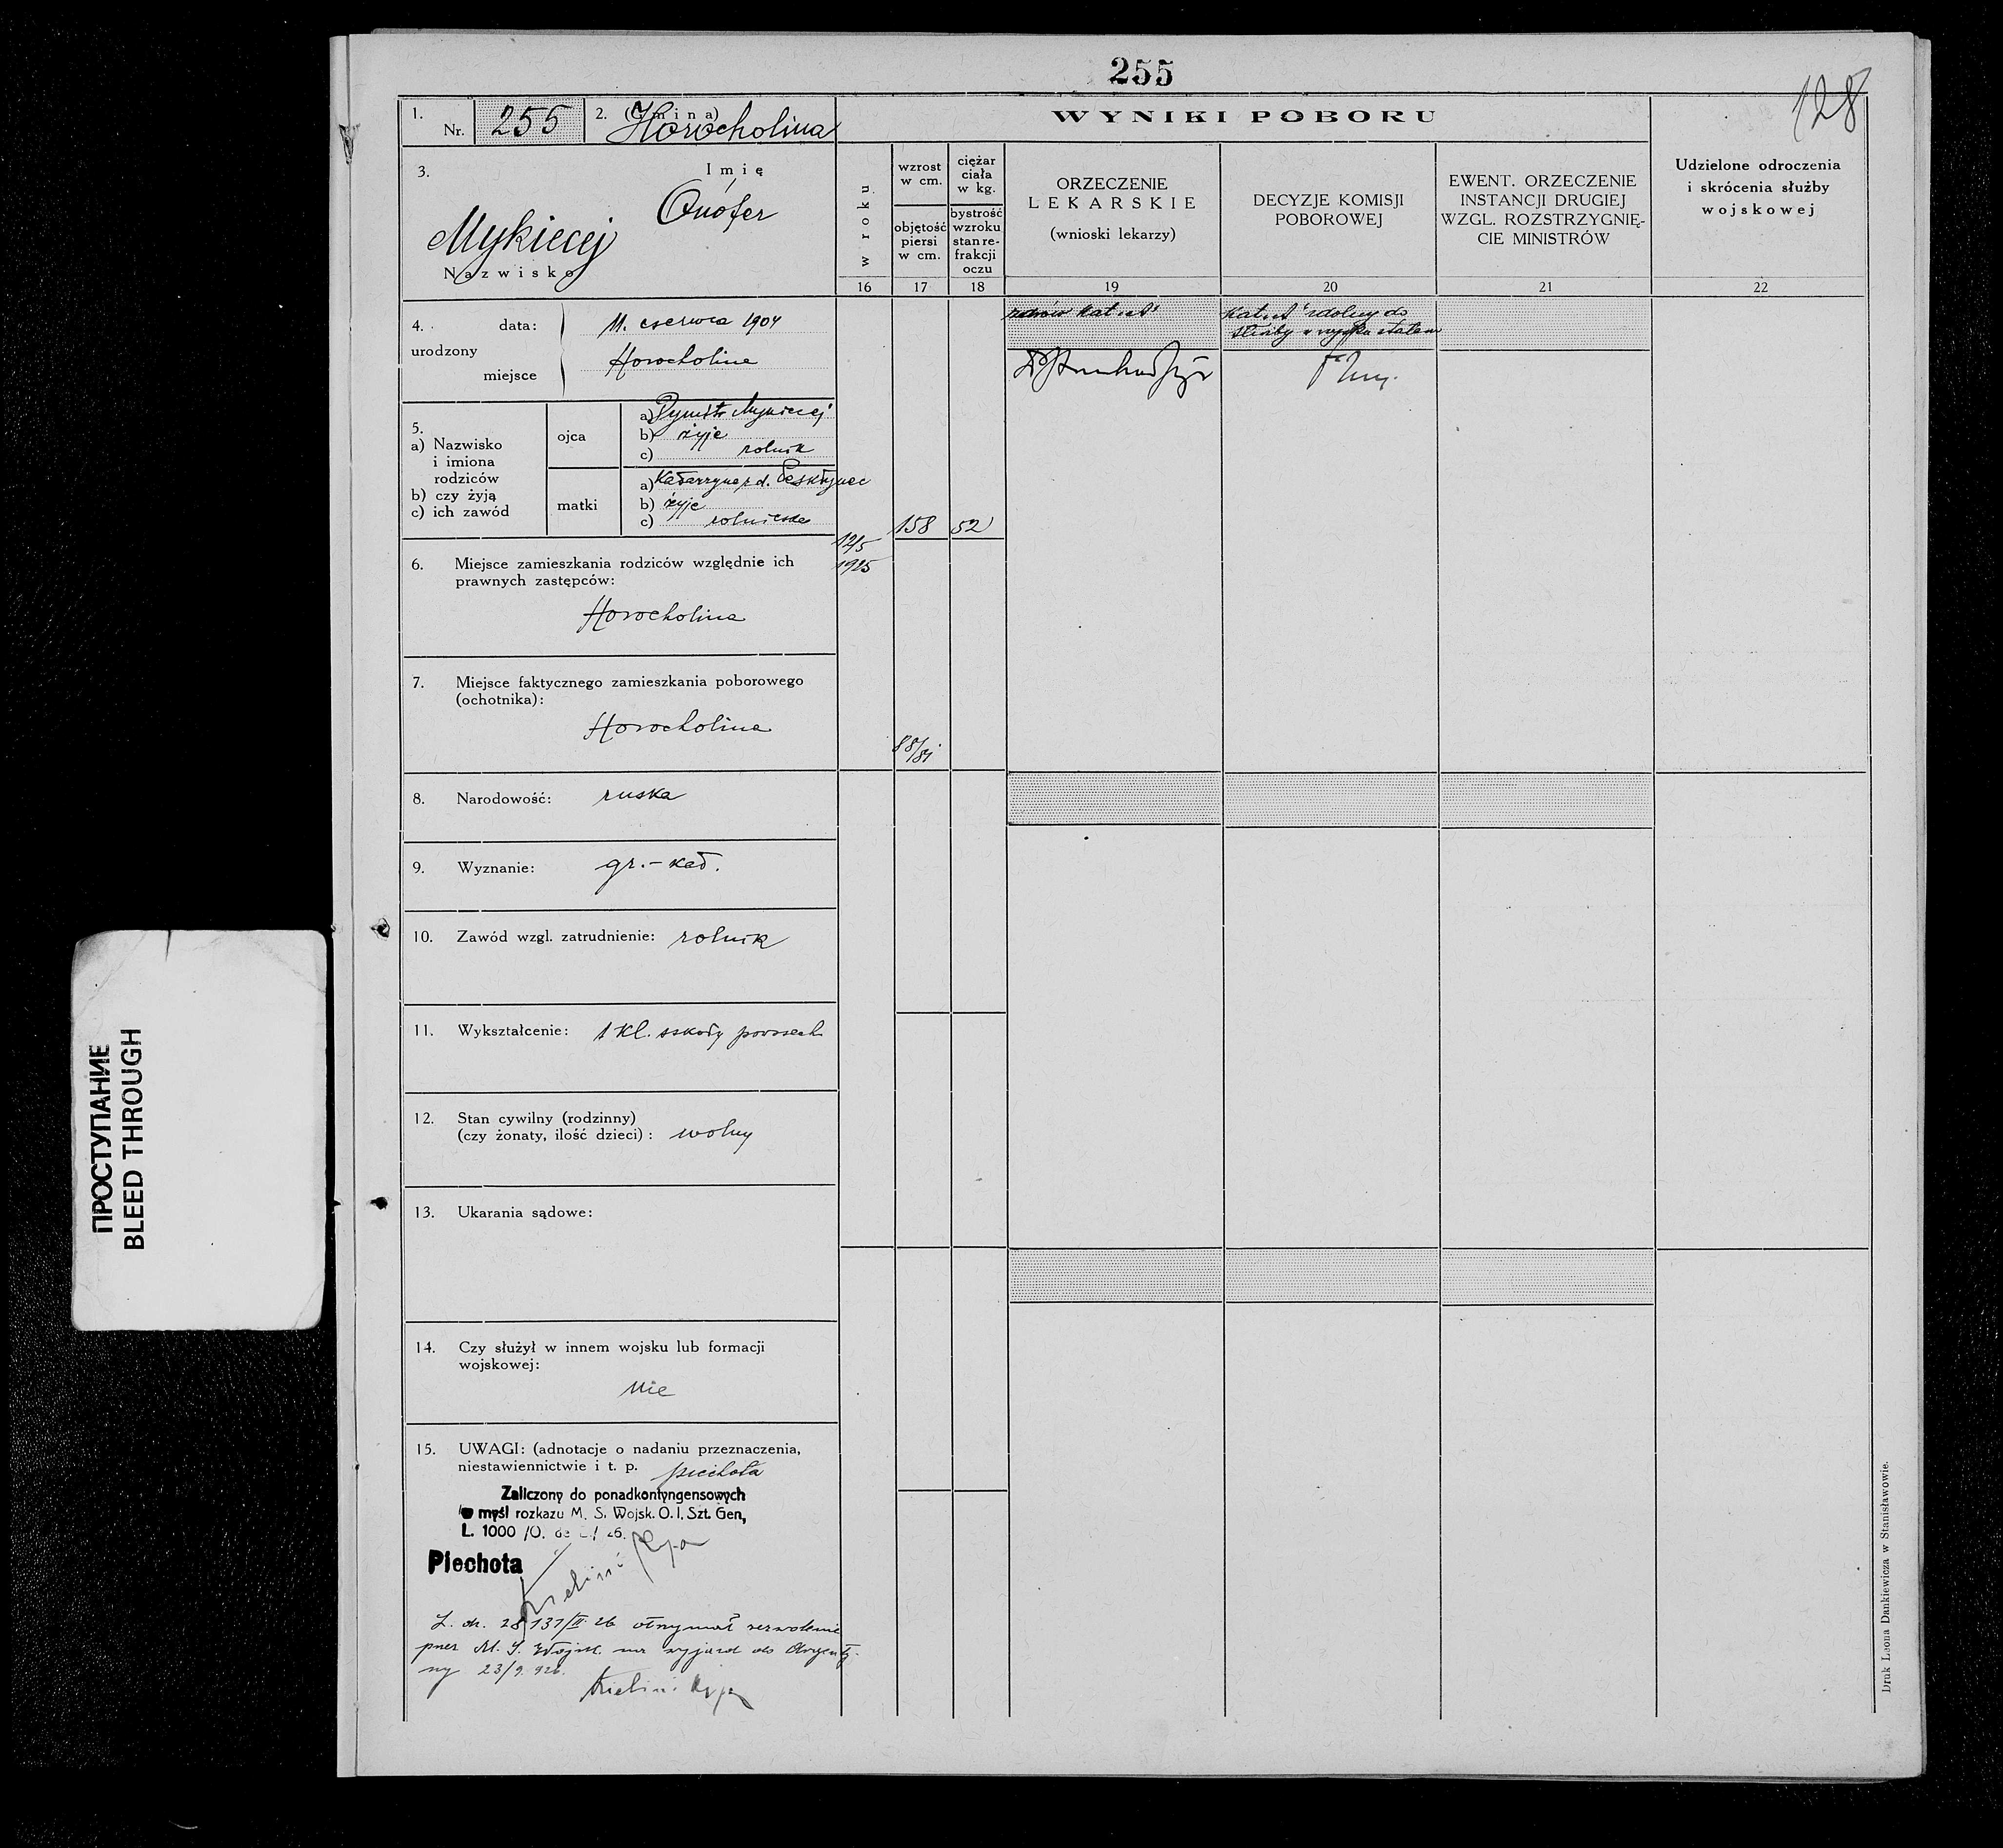 255
128
1.
Nr. 255
2. (Gmina)
Horocholina
WYNIKI POBORU
3.
Imię
Onófer
Mykiecej
Nazwisko
w roku
wzrost
w cm.
objętość
piersi
w cm.
ciężar
ciała
w kg.
bystrość
wzroku
stan re-
frakcji
oczu
ORZECZENIE
LEKARSKIE
(wnioski lekarzy)
DECYZJE KOMISJI
POBOROWEJ
EWENT. ORZECZENIE
INSTANCJI DRUGIEJ
WZGL. ROZSTRZYGNIĘ-
CIE MINISTRÓW
Udzielone odroczenia
i skrócenia służby
wojskowej
16 17 18 19 20 21 22
4.
urodzony
data: 11. czerwca 1904
miejsce Horocholina
zdrów kat. "A"
kat. "A" zdolny do
służby w wojsku stałem
5.
a) Nazwisko
i imiona
rodziców
b) czy żyją
c) ich zawód
ojca
a) Dymitr Mykiecej
b) żyje
c) rolnik
matki
a) Katarzyna z d.
b) żyje
c) rolniczka
12/5
1925
158
52
88/84
6. Miejsce zamieszkania rodziców względnie ich
prawnych zastępców:
Horocholina
7. Miejsce faktycznego zamieszkania poborowego
(ochotnika):
Horocholina
8. Narodowość: ruska
9. Wyznanie: gr.-kat.
10. Zawód wzgl. zatrudnienie: rolnik
11. Wykształcenie: 1 kl. szkoły powszech
12. Stan cywilny (rodzinny)
(czy żonaty, ilość dzieci): wolny
13. Ukarania sądowe:
14. Czy służył w innem wojsku lub formacji
wojskowej:
nie
15. UWAGI: (adnotacje o nadaniu przeznaczenia,
niestawiennictwie i t. p. piechota
Zaliczony do ponadkontyngensowych
w myśl rozkazu M. S. Wojsk. O. I. Szt. Gen,
L. 1000 /O. de 26.
Piechota
L. dz. 28137/II 26 otrzymał zezwolenie
przez M. S. Wojsk. na wyjazd do Argenty-
ny 23/9. 926.
Druk Leona Dankiewicza w Stanisławowie.
ПРОСТУПАНИЕ
BLEED THROUGH